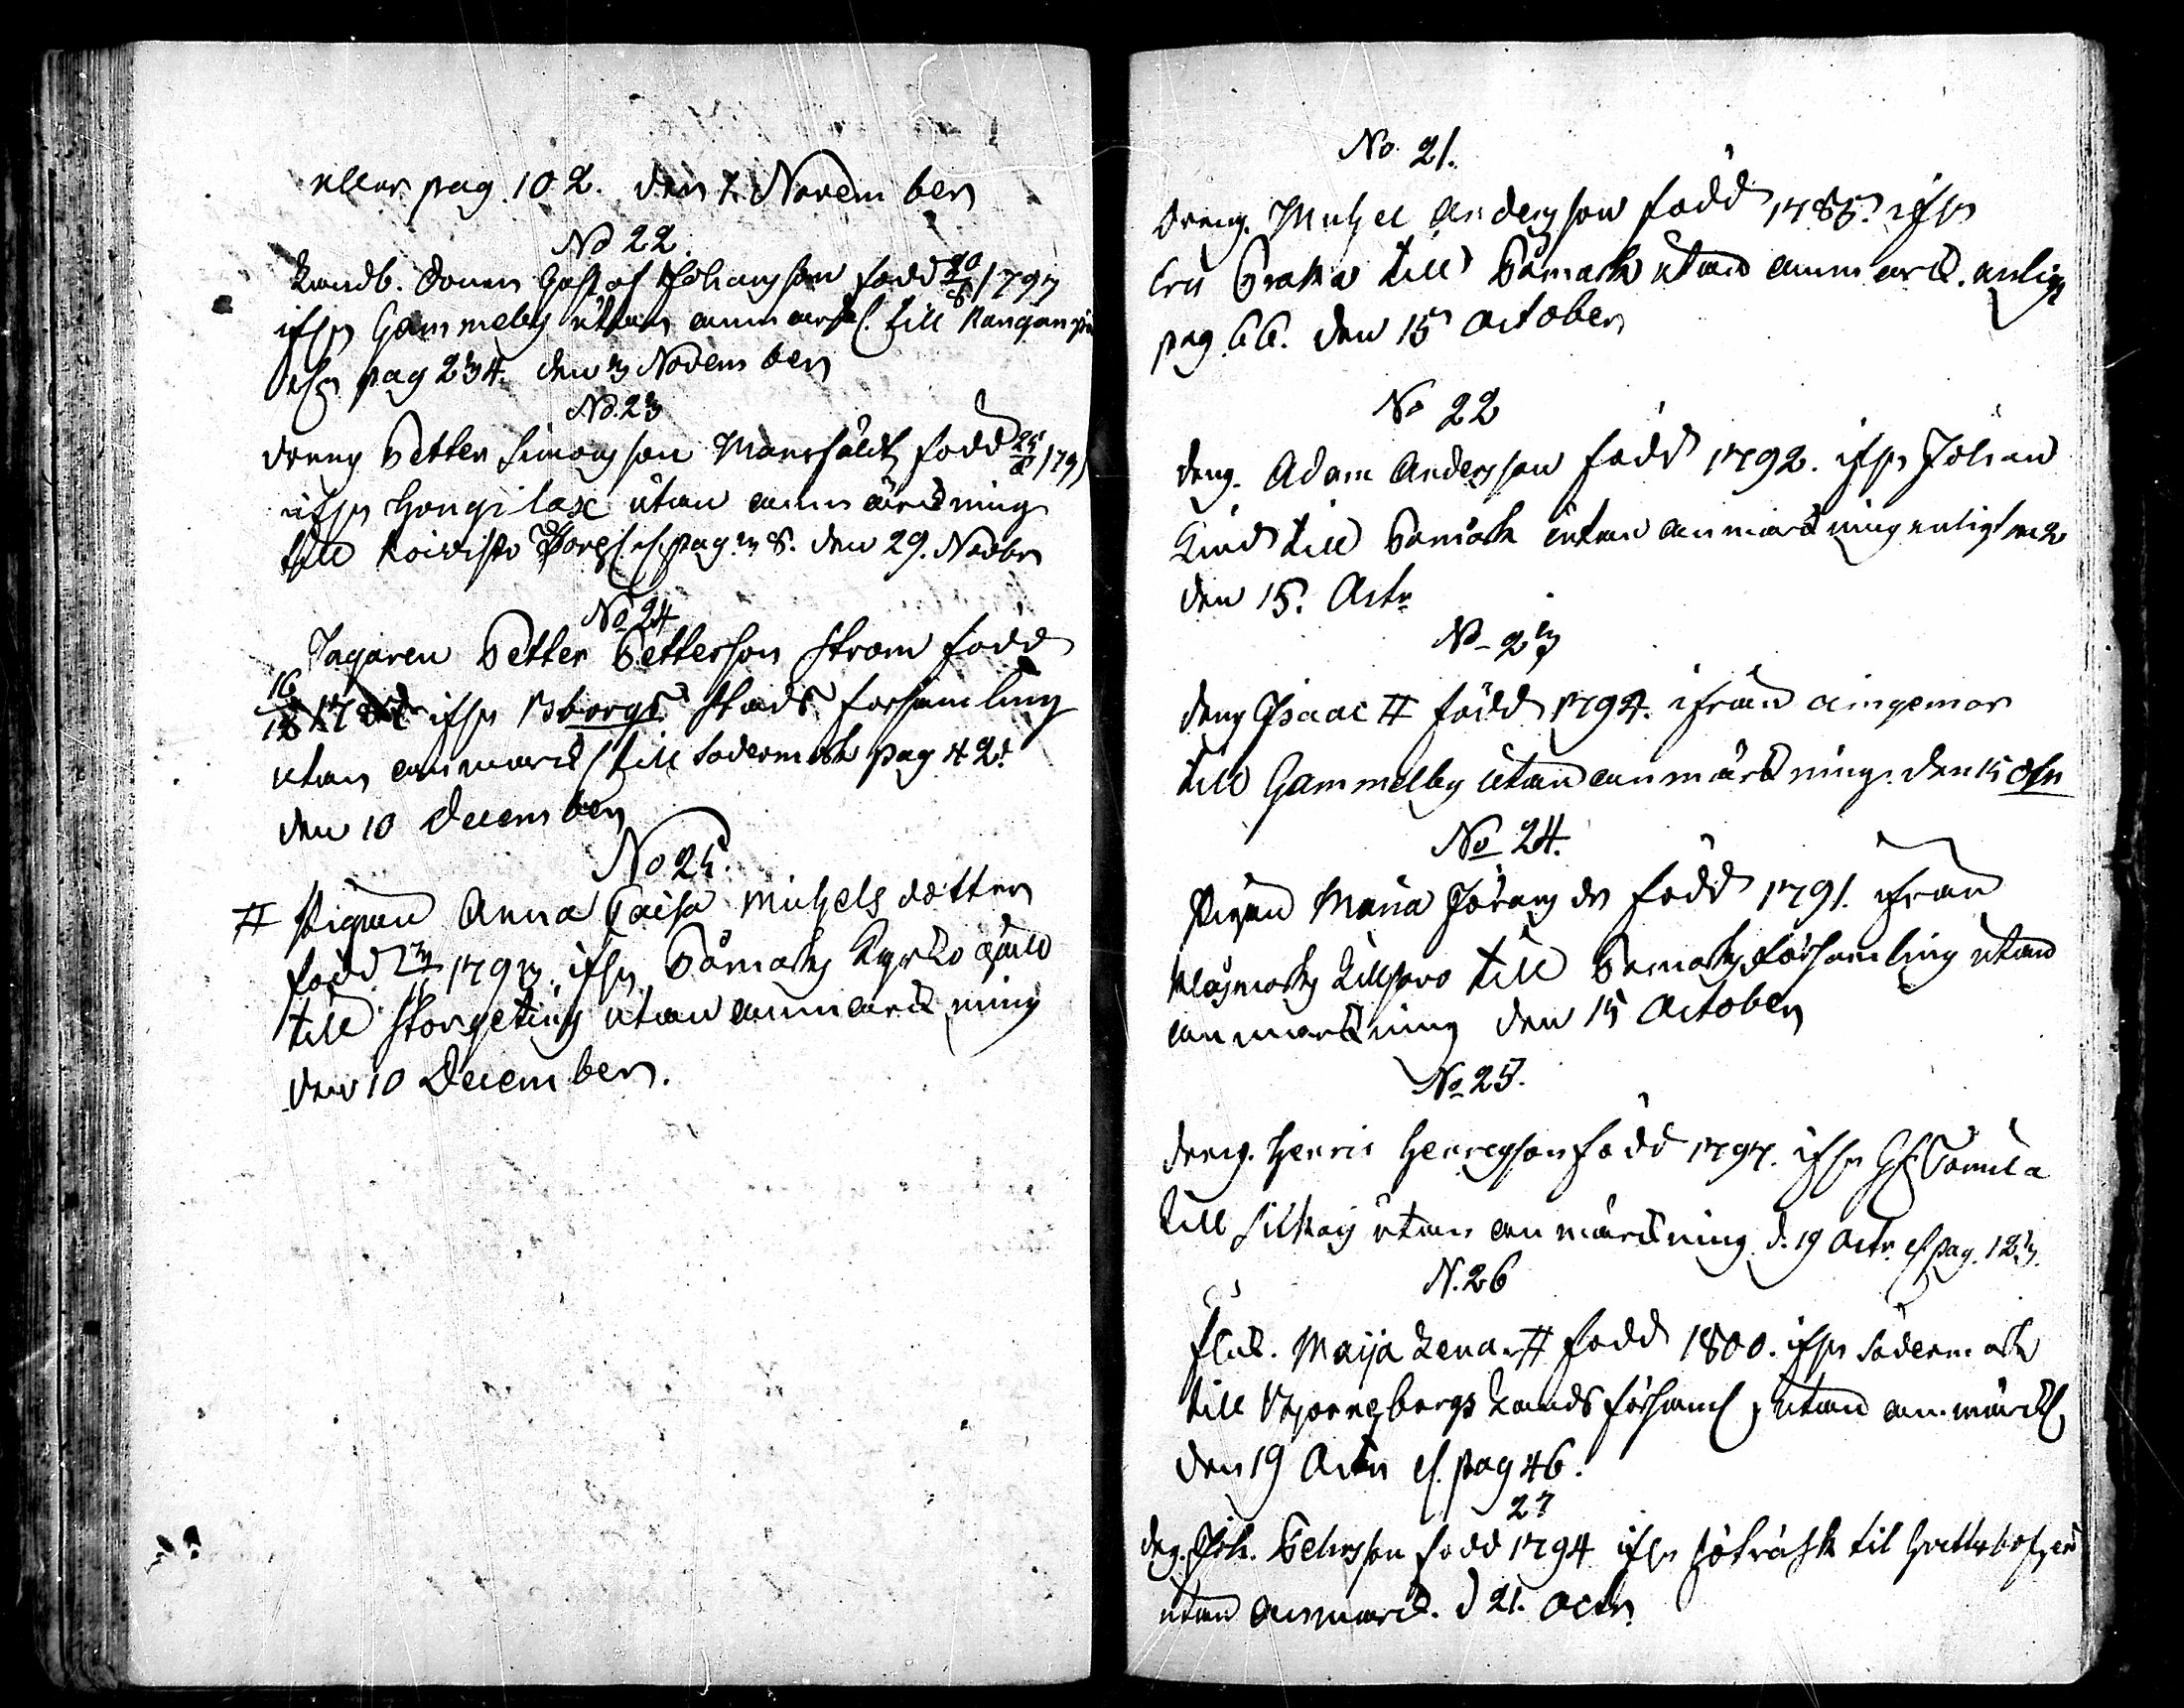 eller pag. 102. den 7. November
No 22.
Landb. Sonen Gustaf Johansson född 20/8 1797
ifrån Gammelby utan anmärkn. till Kanganpä
cfr pag 234. den 3 November
No. 23
dreng Petter Simonsson född 25/8 179
ifrån Hongilax utan anmärckning
till Koivisto pag. 38. den 29. Novbr
No 24
Jagaren Petter Pettersson Ström född
16/12 ifrån Bborgs Stads församling
utan anmärck till Södermark pag 42.
den 10 December
No 25.
# Pigan Anna Caisa Michels dotter
född 1793 ifrån Påmarks Kyrko
till utan anmärckning
den 10 December.
No. 21.
dreng. Michel Andersson född 1785. ifrån
till Påmark utan anmärck. enligt
pag. 66. den 15 October
No 22
deng. Adam Andersson född 1792. ifrån Johan
Lind till Påmark utan anmärckning enligt
den 15. Octr
No 23
deng Isaac # född 1794. ifrån
till Gammelby utan anmärckning. den 15 Obr
No 24.
Pigan Maria Jöransdr född 1791. ifrån
Klåsmarks till Påmarks församling utan
anmärckning den 15 October
No 25.
dreng. Henric Henricsson född 1797. ifrån
till utan anmärckning. d. 19 Octr. cf pag. 123.
N. 26
Flick. Maija Lena # född 1800. ifrån Södermark
till Bjørneborgs Lands församl. utan anmärck
den 19 Octr cf. pag 46.
27
dreg. Joh. född 1794 ifrån Sötråsk til
utan anmärck. d 21. Octr